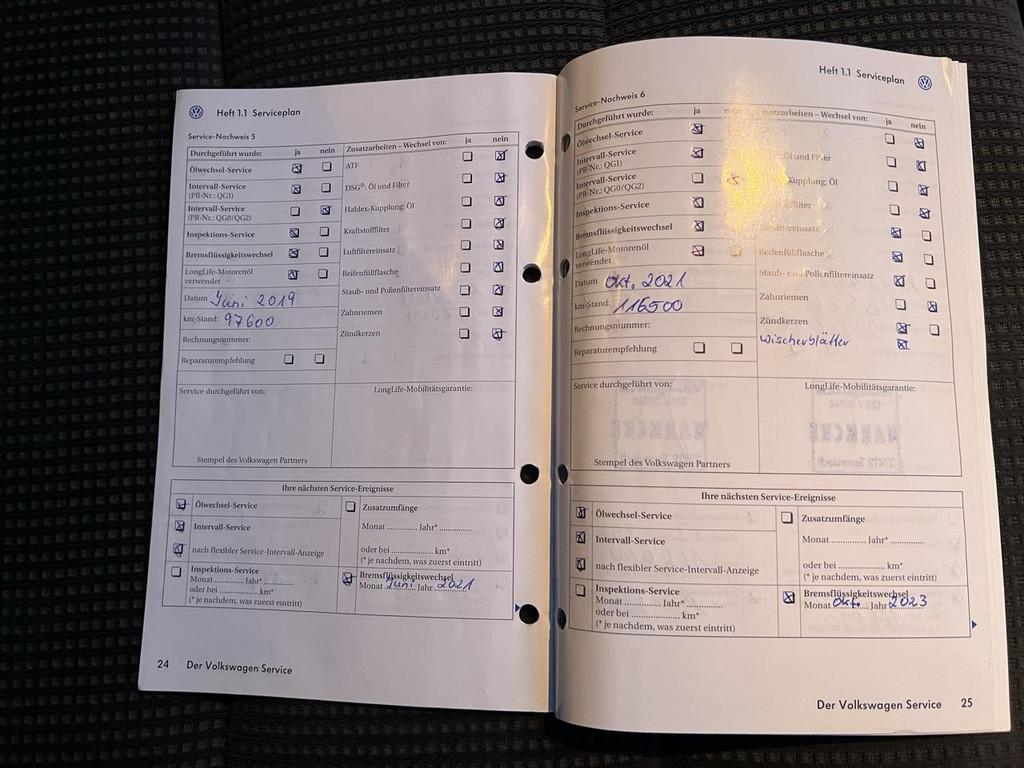 Heft 1.1 Serviceplan
Service-Nachweis 5
Durchgeführt wurde: ja nein
Ölwechsel-Service
Intervall-Service
(PR-Nr.: QG1)
Intervall-Service
(PR-Nr.: QG0/QG2)
Inspektions-Service
Bremsflüssigkeitswechsel
LongLife-Motorenöl
verwendet
Datum Juni 2019
km-Stand: 97600
Rechnungsnummer:
Reparaturempfehlung
Zusatzarbeiten – Wechsel von: ja nein
ATF
DSG®: Öl und Filter
Haldex-Kupplung: Öl
Kraftstofffilter
Luftfiltereinsatz
Reifenfüllflasche
Staub- und Pollenfiltereinsatz
Zahnriemen
Zündkerzen
Service durchgeführt von:
LongLife-Mobilitätsgarantie:
Stempel des Volkswagen Partners
Ihre nächsten Service-Ereignisse
Ölwechsel-Service
Intervall-Service
nach flexibler Service-Intervall-Anzeige
Inspektions-Service
Monat ............ Jahr* ............
oder bei .................... km*
(* je nachdem, was zuerst eintritt)
Zusatzumfänge
Monat ............ Jahr* ............
oder bei .................... km*
(* je nachdem, was zuerst eintritt)
Bremsflüssigkeitswechsel
Monat Juni Jahr 2021
24 Der Volkswagen Service
Heft 1.1 Serviceplan
Service-Nachweis 6
Durchgeführt wurde: ja
Ölwechsel-Service
Intervall-Service
(PR-Nr.: QG1)
Intervall-Service
(PR-Nr.: QG0/QG2)
Inspektions-Service
Bremsflüssigkeitswechsel
LongLife-Motorenöl
verwendet
Datum Okt. 2021
km-Stand: 116500
Rechnungsnummer:
Reparaturempfehlung
– Wechsel von: ja nein
Öl und Filter
Kupplung: Öl
Reifenfüllflasche
Staub- und Pollenfiltereinsatz
Zahnriemen
Zündkerzen
Wischerblätter
Service durchgeführt von:
LongLife-Mobilitätsgarantie:
Stempel des Volkswagen Partners
Ihre nächsten Service-Ereignisse
Ölwechsel-Service
Intervall-Service
nach flexibler Service-Intervall-Anzeige
Inspektions-Service
Monat ............ Jahr* ............
oder bei .................... km*
(* je nachdem, was zuerst eintritt)
Zusatzumfänge
Monat ............ Jahr* ............
oder bei .................... km*
(* je nachdem, was zuerst eintritt)
Bremsflüssigkeitswechsel
Monat Okt. Jahr 2023
Der Volkswagen Service 25